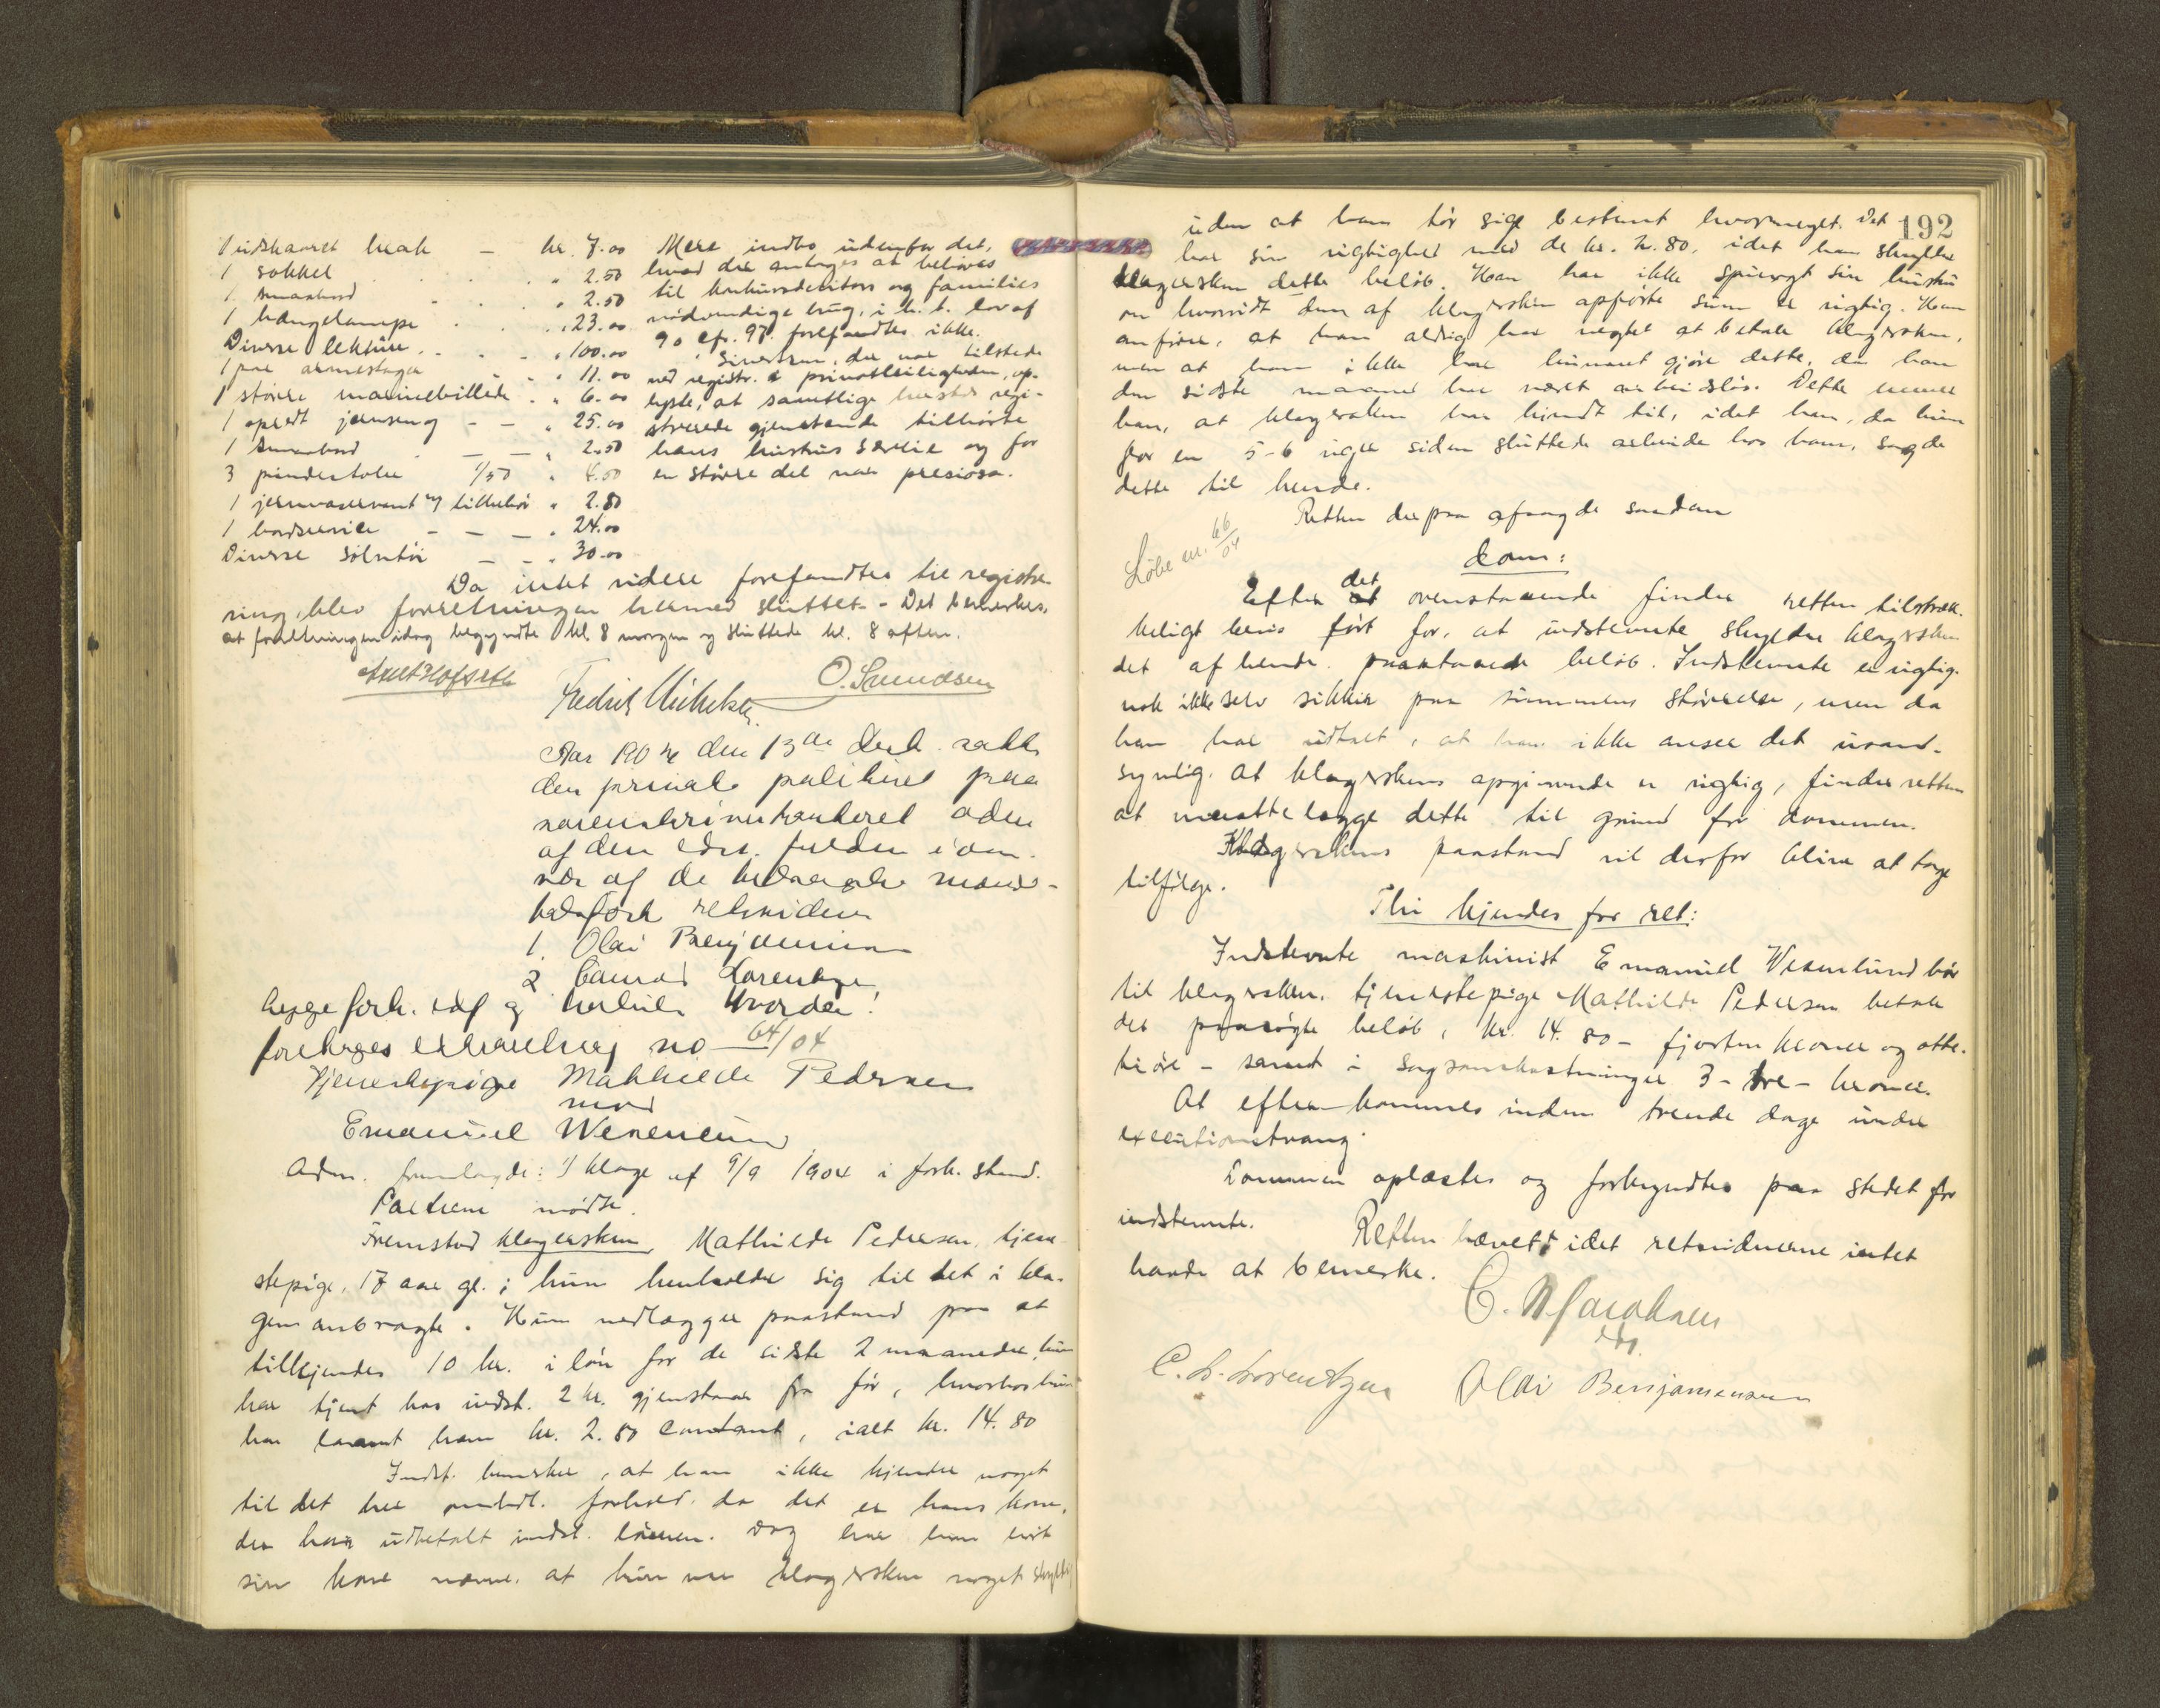 1 udskaaret hrak — kr. 7.00
1 sokkel " 2.50
1 smaabord " 2.50
1 hængelampe " 23.00
Diverse lekture " 100.00
1 par armestager " 11.00
1 større marinebillede " 6.00
1 opredt jernseng — — " 25.00
1 smaabord — — " 2.50
3 pindestole 1/50 " 4.50
1 jernvaservant m/ tilbehør " 2.50
1 bordservice — — — " 24.00
Diverse sølvtøi — — " 30.00
Mere indbo udenfor det,
hvad der antages at behøves
til konkursdebitors og families
nødvendige brug, i h. t. lov af
90 cfr. 97. forefandtes ikke.
Sivertsen, der var tilstede
ved registr. i privatleiligheden, op-
lyste, at samtlige høiest regi-
strerede gjenstande tilhørte
hans hustrus særeie og for
en større del var presiosa.
Da intet videre forefandtes til registre-
ring, blev forretningen hermed sluttet. - Det bemerkes,
at forretningen idag begyndte kl. 8 morgen og sluttede kl. 8 aften.
Fredrik Michelsen
O. Svendsen
Aar 1904 den 13de decb. sattes
den private politiret paa
sorenskriverkontoret
af den edsv. fuldm. i over-
vær af de
retsvidner
1. Olai Benjaminsen
2 Conrad Lorentzen
begge forh. edf. og
foretoges extraretssag no 64/04
Tjenestepige Mathilde Pedersen
mod
Emanuel Wesenlund
Adm. fremlagde: 1) klage af 9/9 1904 i forh. stand.
Parterne mødte.
Fremstod klagersken, Mathilde Pedersen, tjene-
stepige, 17 aar gl.; hun henholder sig til det i kla-
gen anbragte. Hun nedlægger paastand paa at
tilkjendes 10 kr. i løn for de sidste 2 maaneder, hun
har tjent hos indst. 2 kr. gjenstaar fra før, hvorhos hun
har laant ham kr. 2.80 contant, ialt kr. 14.80
Indst. bemerker, at han ikke kjender noget
til det her omhdl. forhold, da det er hans kone,
der har udbetalt indst. lønnen. Dog har han hørt
sin kone nævne, at hun var klagersken noget skyldig
192
uden at han tør sige bestemt hvormeget. Det
har sin rigtighed med de kr. 2.80, idet han skylder
klagersken dette beløb. Han har ikke spurgt sin hustru
om hvorvidt den af klagersken opførte sum er rigtig. Han
anfører, at han aldrig har negtet at betale klagersken,
men at han ikke har kunnet gjøre dette, da han
den sidste maaned har været arbeidsløs. Dette mener
han, at klagersken har kjendt til, idet han, da hun
for en 5-6 uger siden sluttede arbeide hos ham, sagde
dette til hende.
Retten derpaa afsagde saadan
Løbe nr. 66/04
Dom:
Efter det ovenstaaende finder retten tilstræk-
keligt bevis ført for, at indstevnte skylder klagersken
det af hende paastaaede beløb. Indstevnte er rigtig-
nok ikke selv sikker paa summens størrelse, men da
han har udtalt, at han ikke anser det usand-
synlig, at klagerskens opgivende er rigtig, finder retten
at maatte lægge dette til grund for dommen.
Klagerskens paastand vil derfor blive at tage
tilfølge.
Thi kjendes for ret:
Indstevnte maskinist Emanuel Wesenlund bør
til klagersken, tjenestepige Mathilde Pedersen betale
det paasøgte beløb, kr. 14.80 - fjorten kroner og otte-
ti øre - samt i sagsomkostninger 3 - tre - kroner.
At efterkommes inden trende dage under
executionstvang.
Dommen oplæstes og forkyndtes paa stedet for
indstevnte.
Retten hævet, idet retsvidnerne intet
havde at bemerke.
C. N. Jacobsen
C. L. Lorentzen
Olai Benjamensen